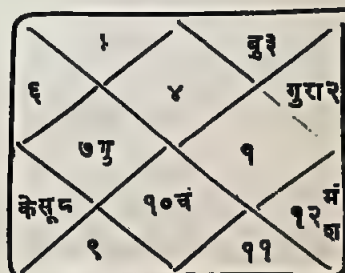 ५
बु३
६
४
गुरा२
७गु
१
केसू८
१०चं
१२
मं
श
९
११